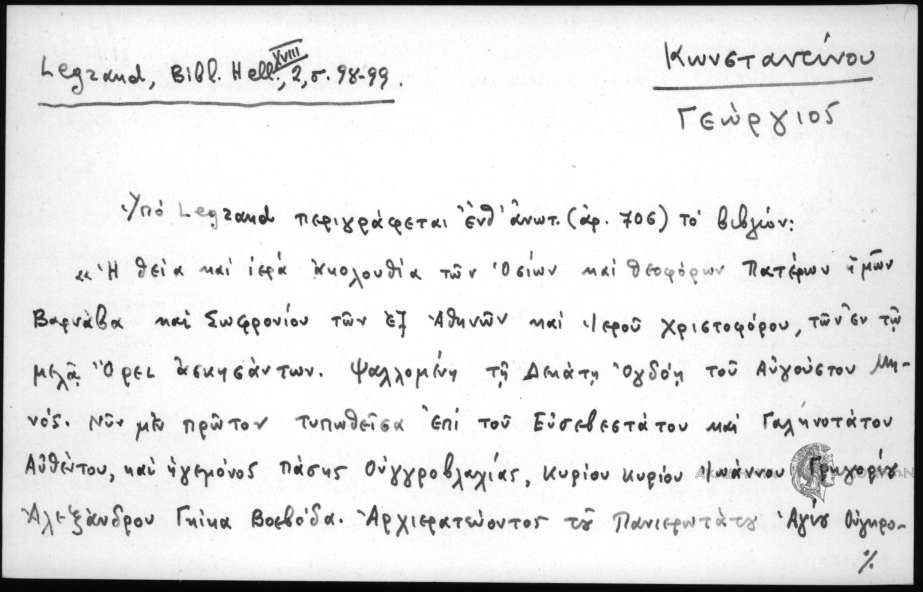 Legrand, Bibl. Hell. XVIII, 2, σ. 98-99.
Κωνσταντίνου
Γεώργιος
Ὑπό Legrand περιγράφεται ἐνθ' ἀνωτ. (ἀρ. 706) τό βιβλίον:
«Ἡ θεία καί ἱερά ἀκολουθία τῶν Ὁσίων καί θεοφόρων Πατέρων ἡμῶν
Βαρνάβα καί Σωφρονίου τῶν ἐξ Ἀθηνῶν καί Ἱεροῦ Χριστοφόρου, τῶν ἐν τῷ
μελᾷ Ὄρει ἀσκησάντων. Ψαλλομένη τῇ Δεκάτῃ Ὀγδόῃ τοῦ Αὐγούστου Μη-
νός. Νῦν μέν πρῶτον τυπωθεῖσα ἐπί τοῦ Εὐσεβεστάτου καί Γαληνοτάτου
Αὐθέντου, καί ἡγεμόνος πάσης Οὐγγροβλαχίας, Κυρίου Κυρίου Ἰωάννου Γρηγορίου
Ἀλεξάνδρου Γκίκα Βοεβόδα. Ἀρχιερατεύοντος τοῦ Πανιερωτάτου Ἁγίου Οὐγκρο-
%